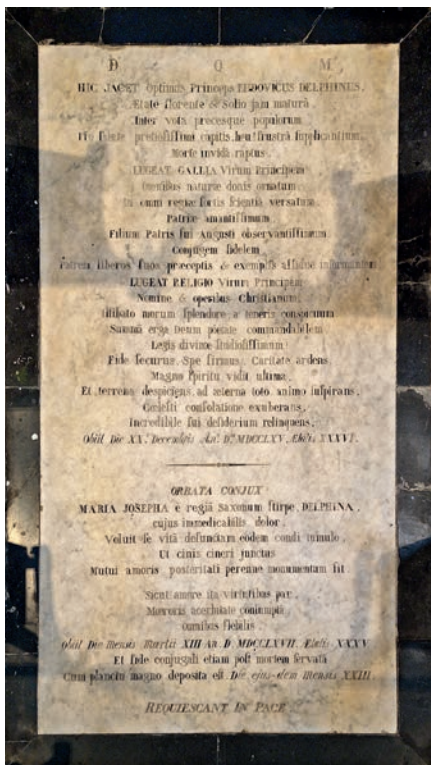 D. O. M.
HIC JACET Optimus Princeps LUDOVICUS DELPHINUS,
Etate florente & Solio jam maturâ
Inter vota precesque populorum
Pro salute pretiosissimi capitis, heu! frustrà supplicantium,
Morte invidâ raptus.
LUGEAT GALLIA Virum Principem
Omnibus naturæ donis ornatum
In omni regiæ sortis scientiâ versatum
Patriæ amantissimum
Filium Patris sui Augusti observantissimum
Conjugem fidelem
Patrem liberos suos præceptis & exemplis assidue informantem
LUGEAT RELIGIO Virum Principem
Nomine & operibus Christianum,
Illibato morum splendore a teneris conspicuum
Summâ erga Deum pietate commendabilem
Legis divinæ studiosissimum
Fide securus, Spe firmus, Caritate ardens
Magno spiritu vidit ultima,
Et terrena despiciens, ad æterna toto animo inspirans,
Cœlesti consolatione exuberans,
Incredibile sui desiderium relinquens,
Obiit Die XX. Decembris An. D. MDCCLXV, Ætatis XXXVI.
ORBATA CONJUX
MARIA JOSEPHA è regiâ Saxonum stirpe, DELPHINA,
cujus immedicabilis dolor
Voluit se vitâ defunctam eodem condi tumulo
Ut cinis cineri junctus
Mutui amoris posteritati perenne monumentum sit
Sicut amore ita virtutibus par
Mœroris acerbitate consumpta
Omnibus flebilis
Obiit Die Mensis Martii XIII An. D. MDCCLXVII, Ætatis XXXV
Et fide conjugali etiam post mortem servatâ
Cum planctu magno deposita est Die ejus-dem mensis XXIII
REQUIESCANT IN PACE